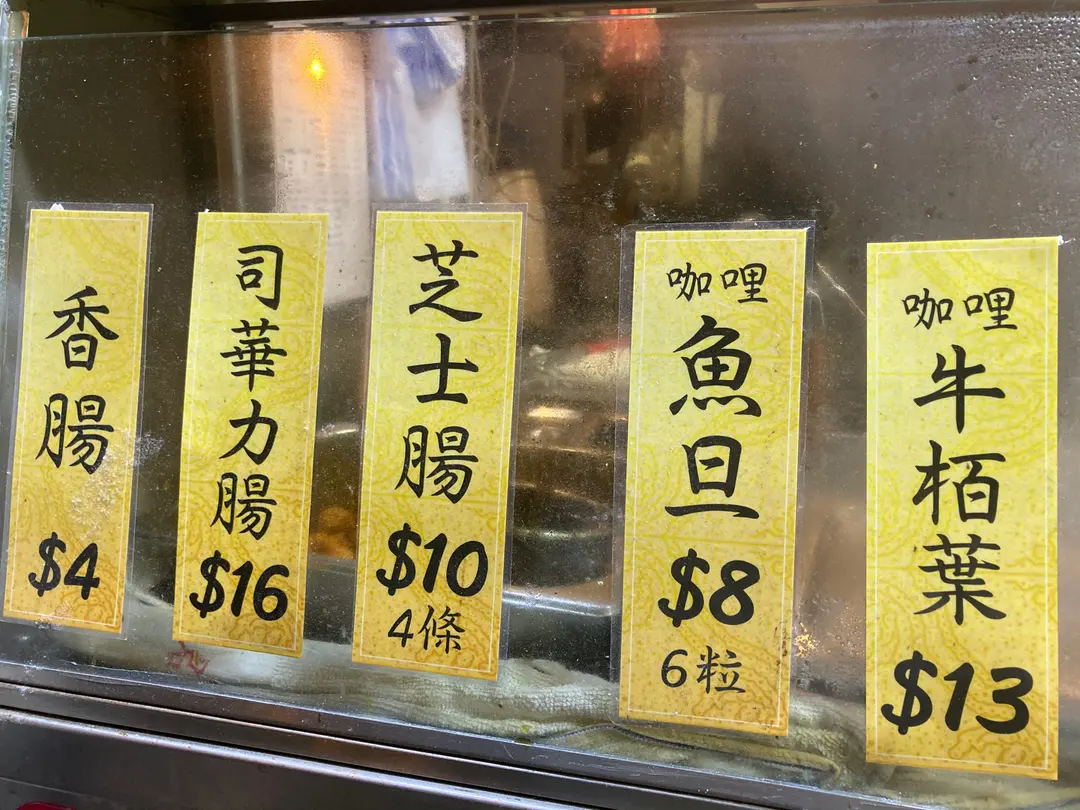 香腸
$4
司華力腸
$16
芝士腸
$10
4條
咖哩
魚旦
$8
6粒
咖哩
牛栢葉
$13